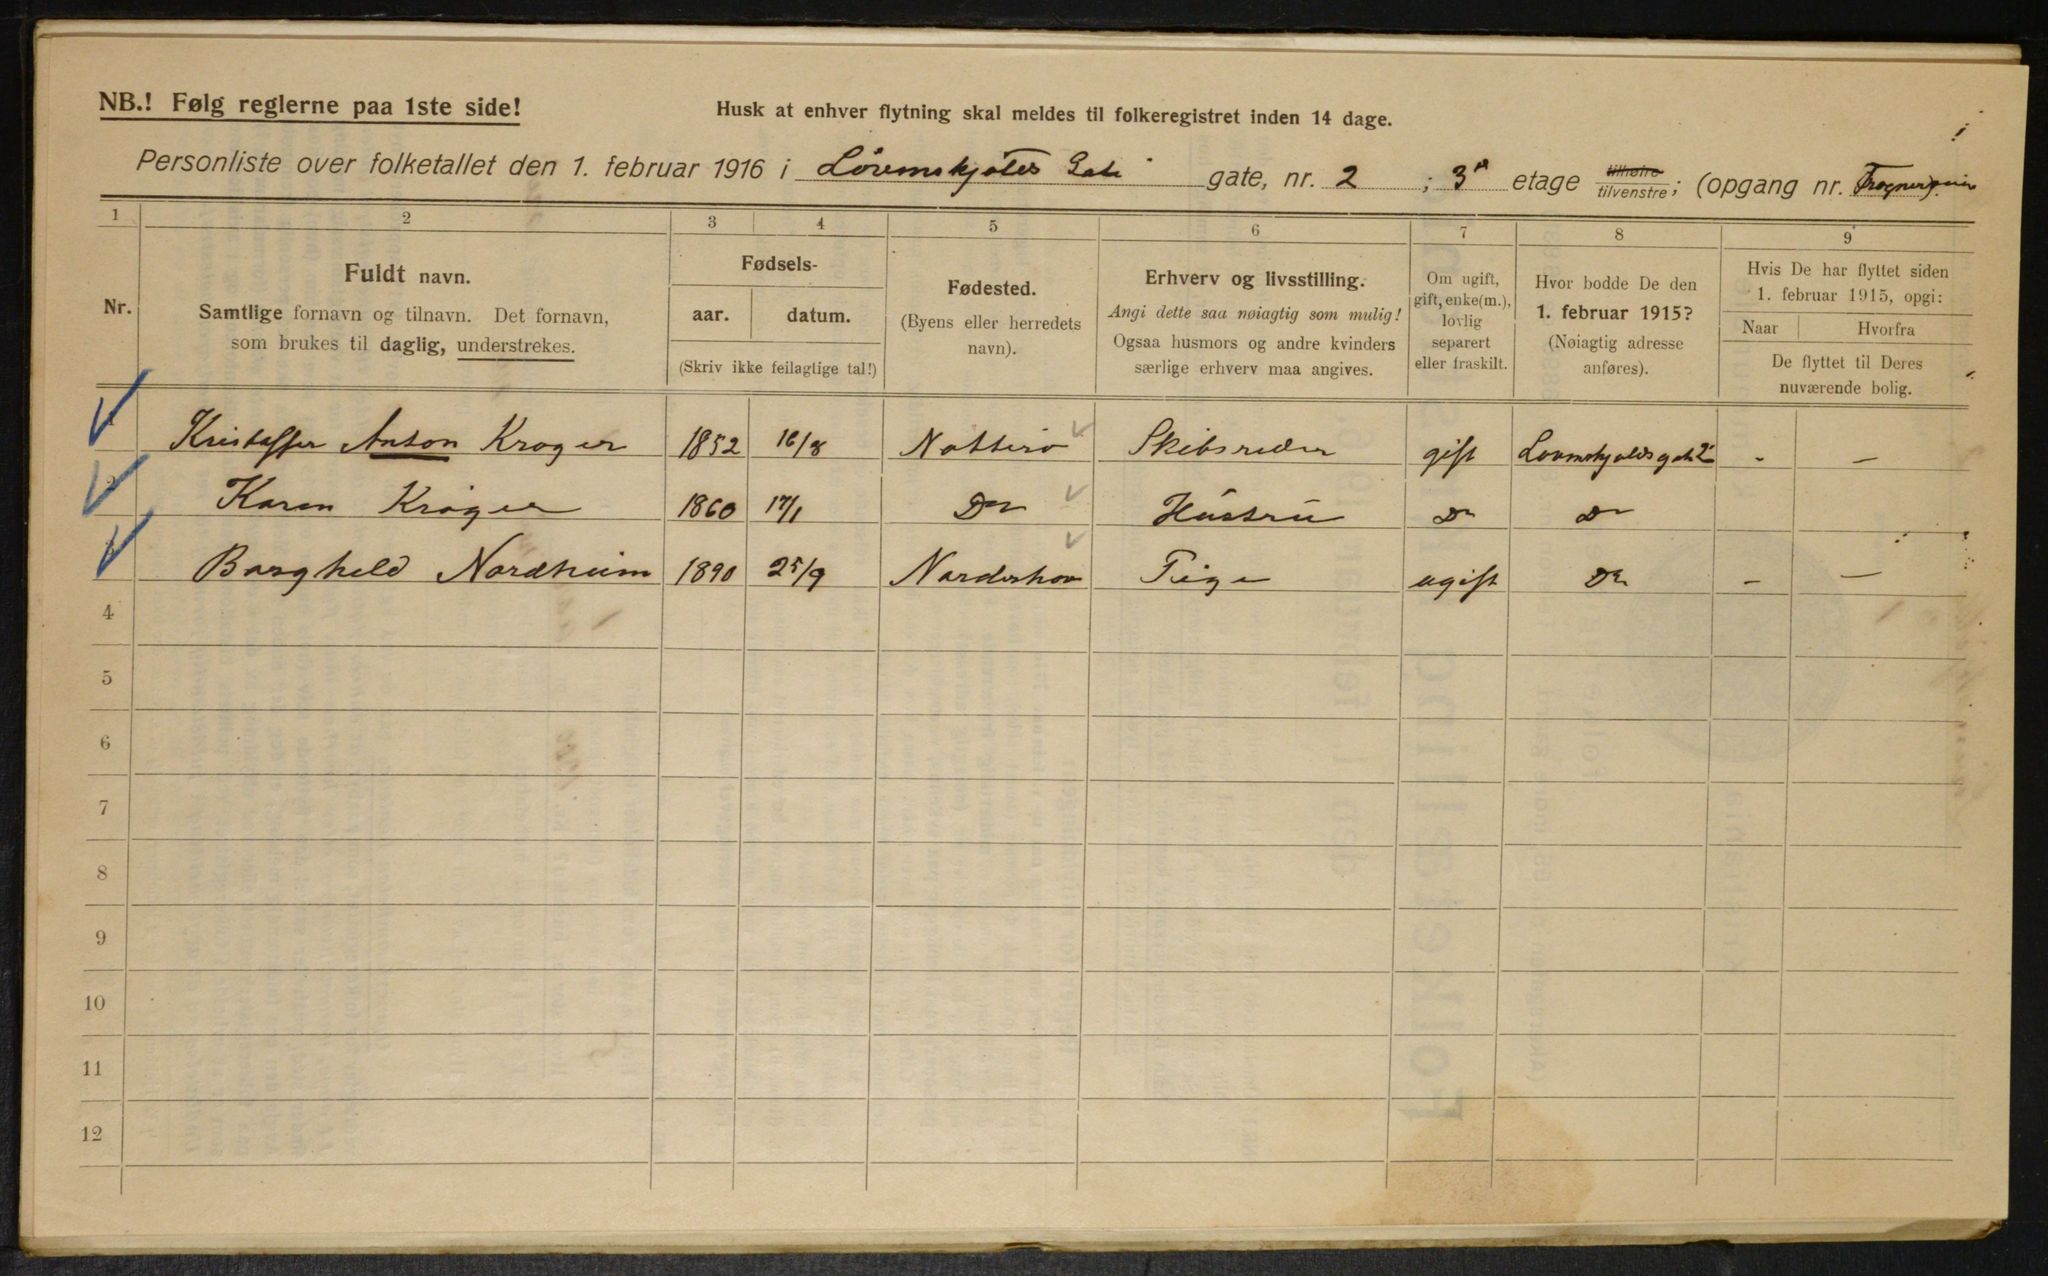 NB.! Følg reglerne paa 1ste side!
Husk at enhver flytning skal meldes til folkeregistret inden 14 dage.
Personliste over folketallet den 1. februar 1916 i Lövenskjolds Gate gate, nr. 2 ; 3die etage tilhøire tilvenstre; (opgang nr.
1 2 3 4 5 6 7 8 9
Nr.
Fuldt navn.
Samtlige fornavn og tilnavn. Det fornavn,
som brukes til daglig, understrekes.
Fødsels-
aar. datum.
(Skriv ikke feilagtige tal!)
Fødested.
(Byens eller herredets
navn).
Erhverv og livsstilling.
Angi dette saa nøiagtig som mulig!
Ogsaa husmors og andre kvinders
særlige erhverv maa angives.
Om ugift,
gift, enke(m.),
lovlig
separert
eller fraskilt.
Hvor bodde De den
1. februar 1915?
(Nøiagtig adresse
anføres).
Hvis De har flyttet siden
1. februar 1915, opgi:
Naar Hvorfra
De flyttet til Deres
nuværende bolig.
1 Kristoffer Anton Krøger 1852 16/8 Nøtterø Skibsreder gift Lovenskjoldsgate 2 - —
2 Karen Krøger 1860 17/1 Do Hústrú Do Do
3 Borghild Nordheim 1890 25/9 Norderhov Pige ugift Do - —
4
5
6
7
8
9
10
11
12